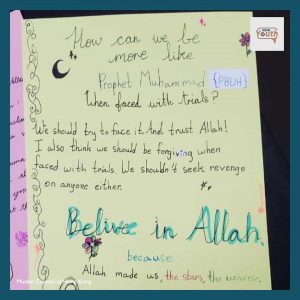 How can we be
more like
Prophet Muhammad {PBUH}
When faced with trials?
We should try to face it. And trust Allah!
I also think we should be forgiving when
faced with trials. We shouldn't seek revenge
on anyone either.
Belivee in Allah.
because
Allah made us, the stars, the universe,
Youth
Muslim Council of Hong Kong